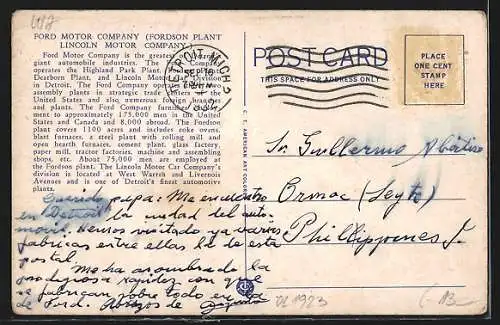 FORD MOTOR COMPANY (FORDSON PLANT
LINCOLN MOTOR COMPANY)
Ford Motor Company is the greatest of
giant automobile industries. The Company
operates the Highland Park Plant, Fordson Plant,
Dearborn Plant, and Lincoln Motor Car Division
in Detroit. The Ford Company operates
assembly plants in strategic trade centers of the
United States and also numerous foreign branches
and plants. The Ford Company furnishes employment
to approximately 175,000 men in the United
States and Canada and 8,000 abroad. The Fordson
plant covers 1100 acres and includes coke ovens,
blast furnaces, a steel plant with rolling mill and
open hearth furnaces, cement plant, glass factory,
paper mill, tractor factories, machine and assembling
shops, etc. About 75,000 men are employed at
the Fordson plant. The Lincoln Motor Car Company's
division is located at West Warren and Livernois
Avenues and is one of Detroit's finest automotive
plants.
DETROIT, MICH.
POST CARD
THIS SPACE FOR ADDRESS ONLY
PLACE
ONE CENT
STAMP
HERE
C. T. AMERICAN ART COLORED
Sr. Guillermo
Ormoc (Leyte)
Phillippines I.
Querido papa: Me encuentro
en Detroit la ciudad del auto-
móvil. Hemos visitado ya varias
fabricas entre ellas la de esta
postal.
Me ha asombrado la
prodigiosa rapidez con que
se fabrican sobre todo en la
de Ford. Abrazos de
1923